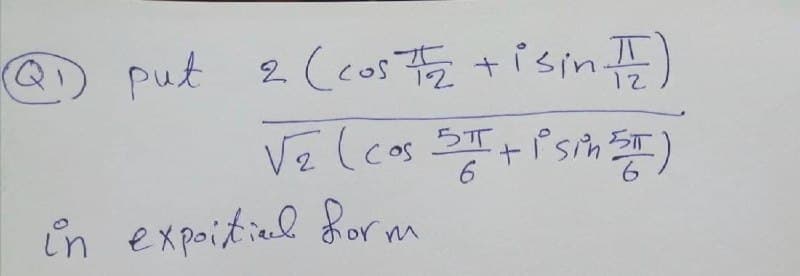 Q1 put 2 (cos π/12 + i sin π/12)
√2 (cos 5π/6 + i sin 5π/6)
in expoitial form